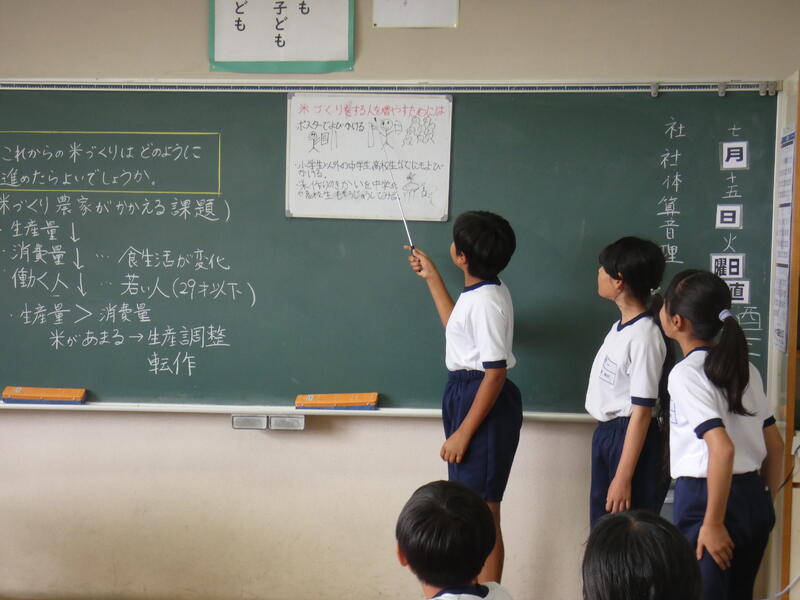 も
子ども
ども
これからの米づくりは どのように
進めたらよいでしょうか。
米づくり農家がかかえる課題)
・生産量↓
・消費量↓ … 食生活が変化
・働く人↓ … 若い人(29才以下)
・生産量>消費量
米があまる→生産調整
転作
米づくりをする人を増やすためには
ポスターでよびかける
・小学生以外の中学生,高校生などにもよび
かける。
社社体算音理
七
月
十五
日
火
曜日
直